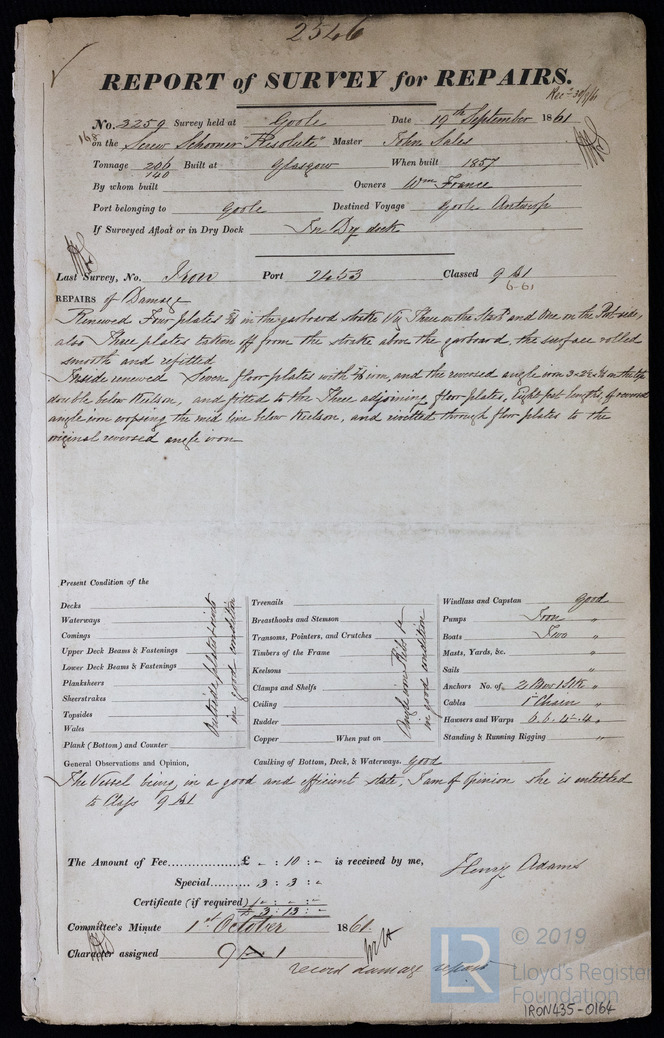 2546
REPORT of SURVEY for REPAIRS.
Rec 30/9/61
No. 2259 Survey held at Goole Date 19th September 1861
168 on the Screw Schooner "Resolute" Master John Sales
Tonnage 206 Built at Glasgow When built 1857
140
By whom built Owners Wm France
Port belonging to Goole Destined Voyage Goole Antwerp
If Surveyed Afloat or in Dry Dock In Dry dock
Last Survey, No. Iron Port 2453 Classed 9 A1
6-61
REPAIRS of Damage
Renewed Four plates in the garboard strake Viz Three in the Starbd and One in the Port side,
also Three plates taken off from the strake above the garboard, the surface rolled
smooth and refitted
Inside renewed Seven floor plates with iron, and the reversed angle iron in the
double below Keelson, and fitted to the Three adjoining floor plates, Eight feet lengths, of reversed
angle iron crossing the mid line below Keelson, and rivetted through floor plates to the
original reversed angle iron
Present Condition of the
Decks
Waterways
Comings
Upper Deck Beams & Fastenings
Lower Deck Beams & Fastenings
Planksheers
Sheerstrakes
Topsides
Wales
Plank (Bottom) and Counter
Outside plates & rivets
in good condition
Treenails
Breasthooks and Stemson
Transoms, Pointers, and Crutches
Timbers of the Frame
Keelsons
Clamps and Shelfs
Ceiling
Rudder
Copper When put on
Angle iron Ribs &c
in good condition
Windlass and Capstan good
Pumps Iron "
Boats Two "
Masts, Yards, &c. "
Sails "
Anchors No. of, 2 Bow 1 Stm "
Cables 1 Chain "
Hawsers and Warps 6.6.4.4 "
Standing & Running Rigging "
General Observations and Opinion, Caulking of Bottom, Deck, & Waterways. good
The Vessel being in a good and efficient state, I am of Opinion she is entitled
to Class 9 A1
The Amount of Fee................£ - : 10 : - is received by me,
Henry Adams
Special.......... 3 : 3 : -
Certificate (if required) - : - : -
£ 3 : 13 : -
Committee's Minute 1st October 1861
Character assigned 9 A 1
record damage repair
© 2019
LR
Lloyd's Register
Foundation
IRON435-0164